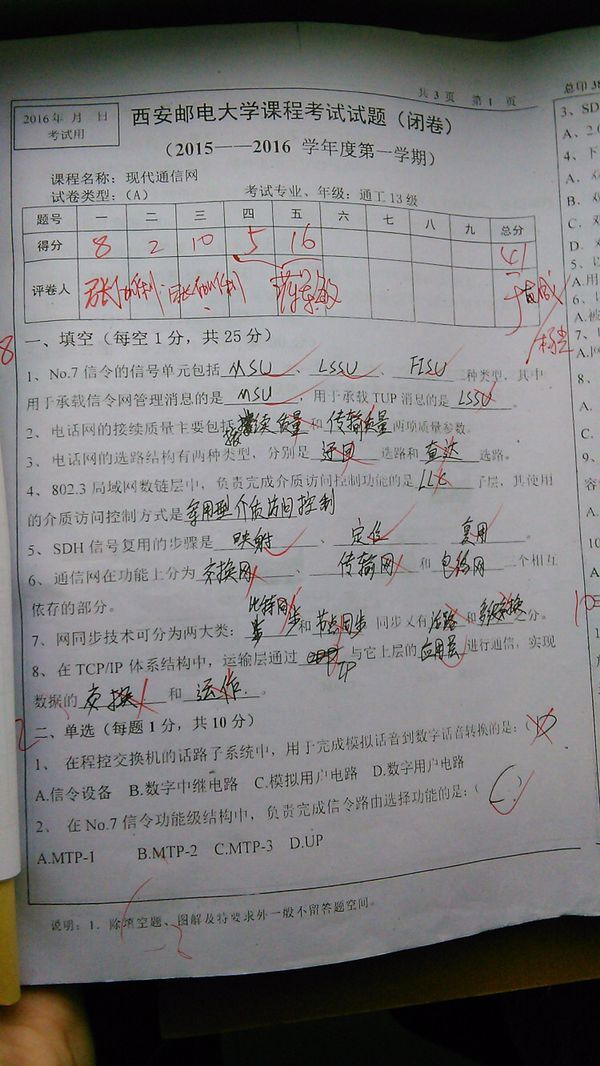 共 3 页 第 1 页
总印 38
2016年 月 日
考试用
西安邮电大学课程考试试题（闭卷）
（2015——2016 学年度第一学期）
课程名称：现代通信网
试卷类型：（A） 考试专业、年级：通工13级
题号 一 二 三 四 五 六 七 八 九 总分
得分 8 2 10 5 16 41
评卷人
8
一、填空（每空1分，共25分）
1、No.7信令的信号单元包括 MSU 、 LSSU 、 FISU 三种类型，其中
用于承载信令网管理消息的是 MSU ，用于承载TUP消息的是 LSSU 。
2、电话网的接续质量主要包括 接续质量 和 传输质量 两项质量参数。
3、电话网的选路结构有两种类型，分别是 迂回 选路和 直达 选路。
4、802.3局域网数链层中，负责完成介质访问控制功能的是 LLC 子层，其使用
的介质访问控制方式是 争用型介质访问控制
5、SDH信号复用的步骤是 映射 、 定位 、 复用
6、通信网在功能上分为 交换网 、 传输网 和 三个相互
依存的部分。
7、网同步技术可分为两大类： 比特同步 和 节点同步 同步又有 和 之分。
8、在TCP/IP体系结构中，运输层通过 IP 与它上层的 应用层 进行通信，实现
数据的 交换 和 运作 。
2
二、单选（每题1分，共10分）
1、 在程控交换机的话路子系统中，用于完成模拟话音到数字话音转换的是：（ D ）
A.信令设备 B.数字中继电路 C.模拟用户电路 D.数字用户电路
2、 在No.7信令功能级结构中，负责完成信令路由选择功能的是：（ C ）
A.MTP-1 B.MTP-2 C.MTP-3 D.UP
说明：1．除填空题、图解及特要求外一般不留答题空间。
3、SD
A、2.0
4、下
A.
B.
C.
D.
5、以
A.用
6、
A.
7、
A.
8、
A.
C.
9、
A.
10
10
A.